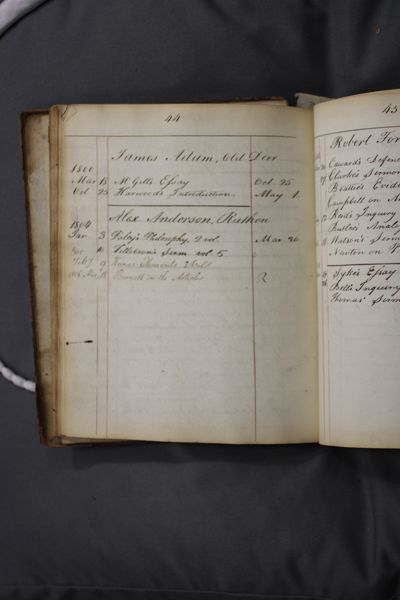 44
James Adam, Old Deer
1800
Mar 18 McGills Essay Oct. 25
Oct. 25 Harwood's Introduction May 1.
Alex Anderson, Ruthven
1804
Jan 3 Paley's Philosophy, 2 vol. Mar 20
Tillotson's Serm. vol. 5
Feb 19 2 vols
Burnett on the Articles R
45
Robert For
Edward's Defence
Clarke's Sermon
Beattie's Evide
Campbell on M
Reid's Inquiry
Butler's Analo
Watson's Serm
Newton on P
Syke's Essay
Bell's Inquiry
Thomas' Serm